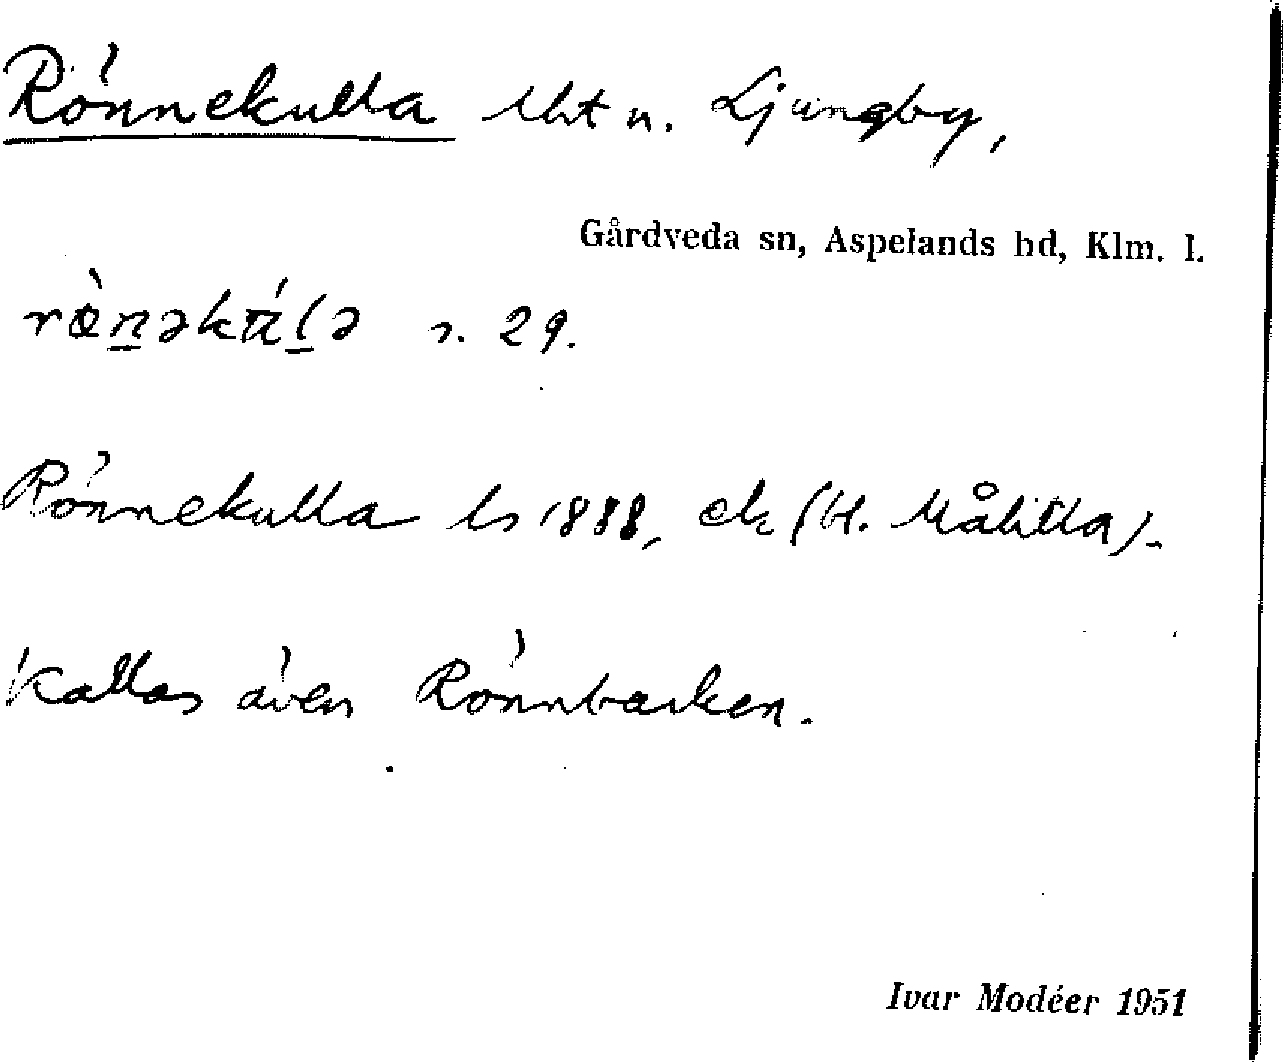 Rönnekulla lht u. Ljungby,
Gårdveda sn, Aspelands hd, Klm. l.
s. 29.
Rönnekulla ls 1888, ek (bl. Målilla).
Kallas även Rönnbacken.
Ivar Modéer 1951